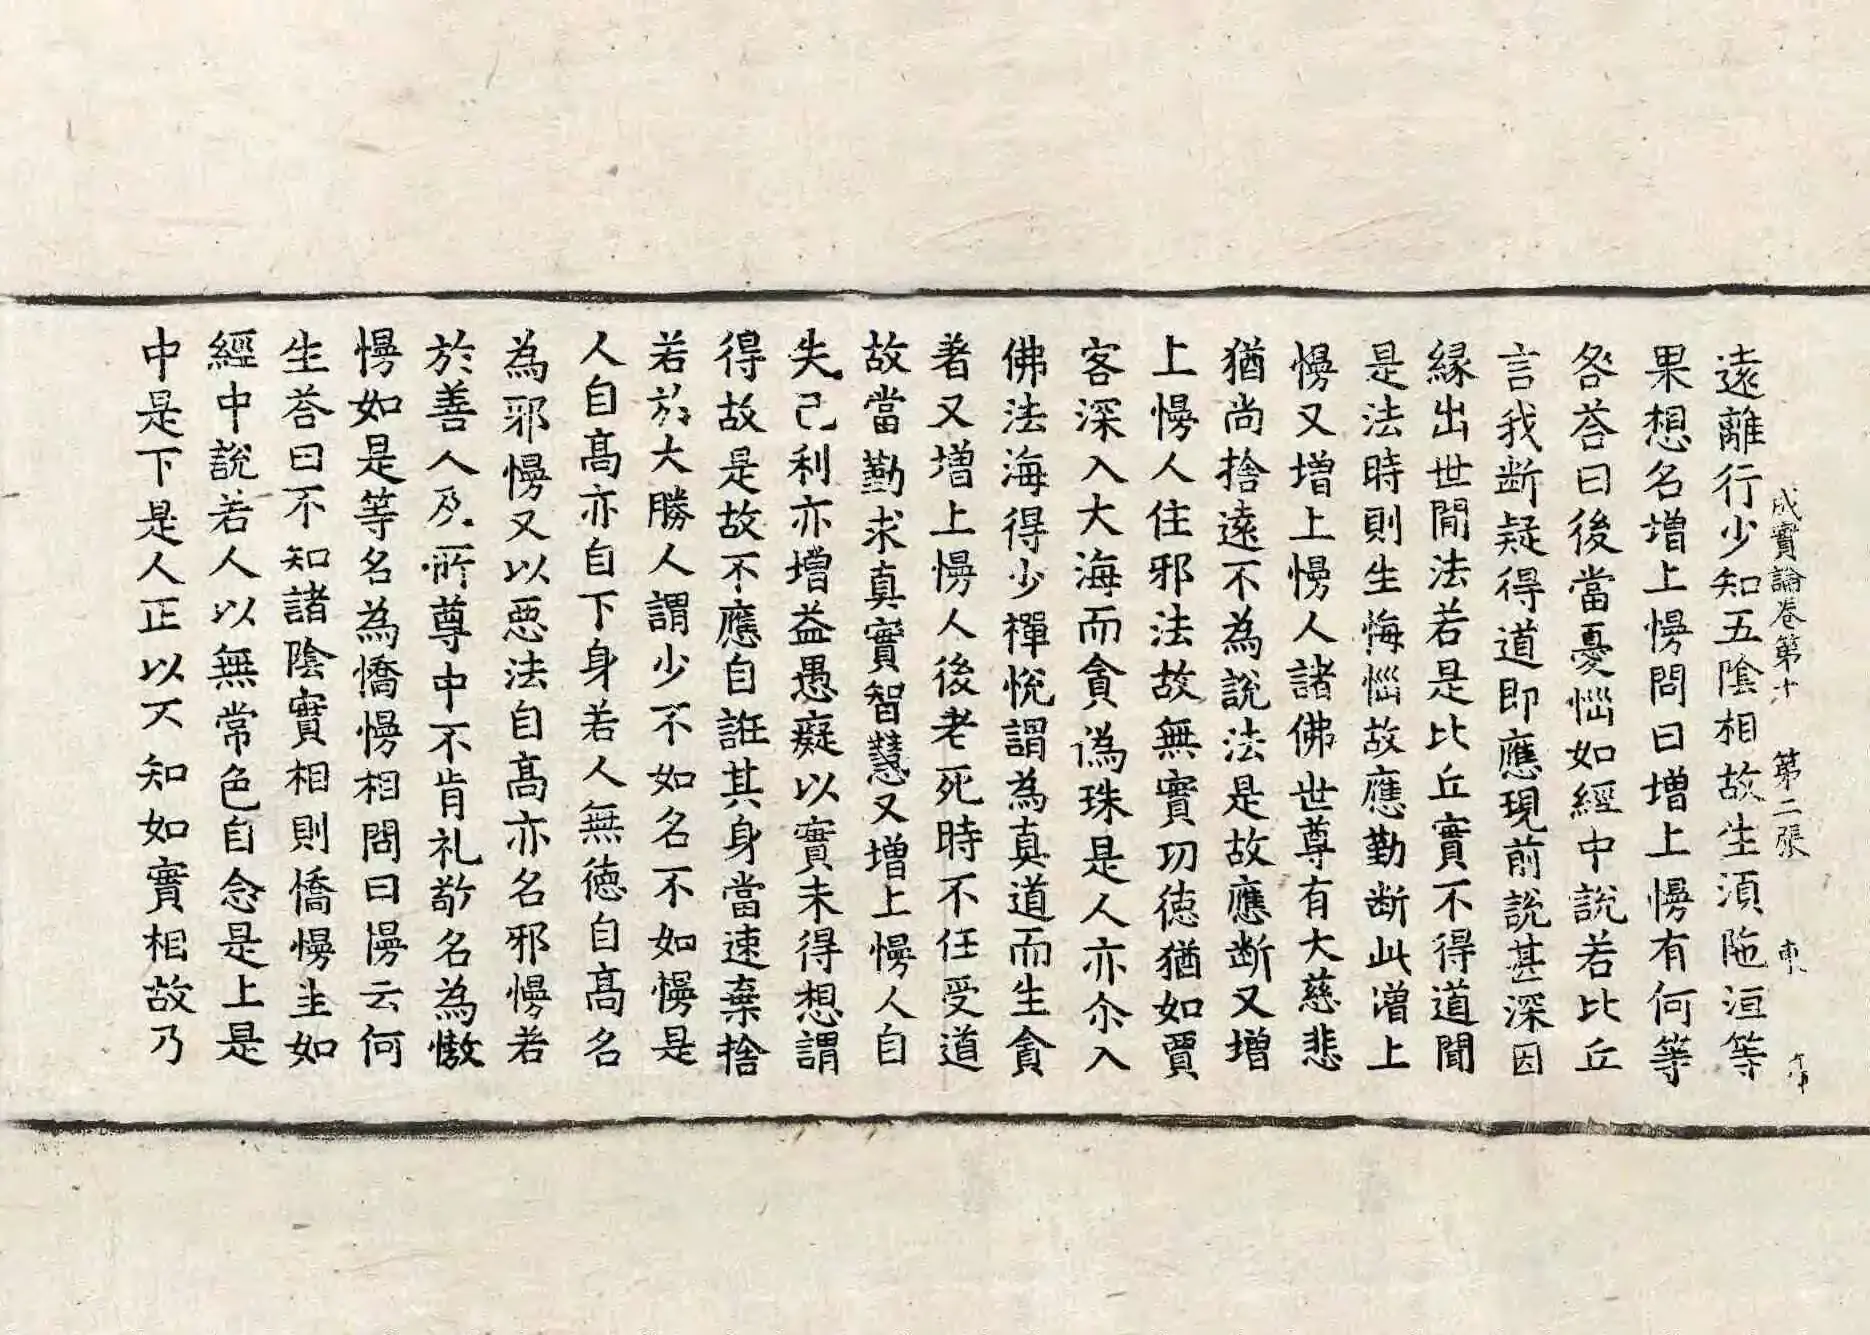 成實論卷第十 第二張 東
遠離行少知五陰相故生湏陁洹等
果想名增上慢問曰增上慢有何等
咎荅曰後當憂惱如經中說若比丘
言我断疑得道即應現前說甚深因
縁出世閒法若是比丘實不得道聞
是法時則生悔惱故應勤断此增上
慢又增上慢人諸佛世尊有大慈悲
猶尚捨遠不為說法是故應断又增
上慢人住邪法故無實功徳猶如賈
客深入大海而貪偽珠是人亦尒入
佛法海得少禪悅謂為真道而生貪
著又增上慢人後老死時不任受道
故當勤求真實智慧又增上慢人自
失己利亦增益愚癡以實未得想謂
得故是故不應自誑其身當速棄捨
若於大勝人謂少不如名不如慢是
人自髙亦自下身若人無徳自髙名
為邪慢又以惡法自髙亦名邪慢若
於善人及所尊中不肯礼敬名為慠
慢如是等名為憍慢相問曰慢云何
生荅曰不知諸陰實相則憍慢生如
經中說若人以無常色自念是上是
中是下是人正以不知如實相故乃